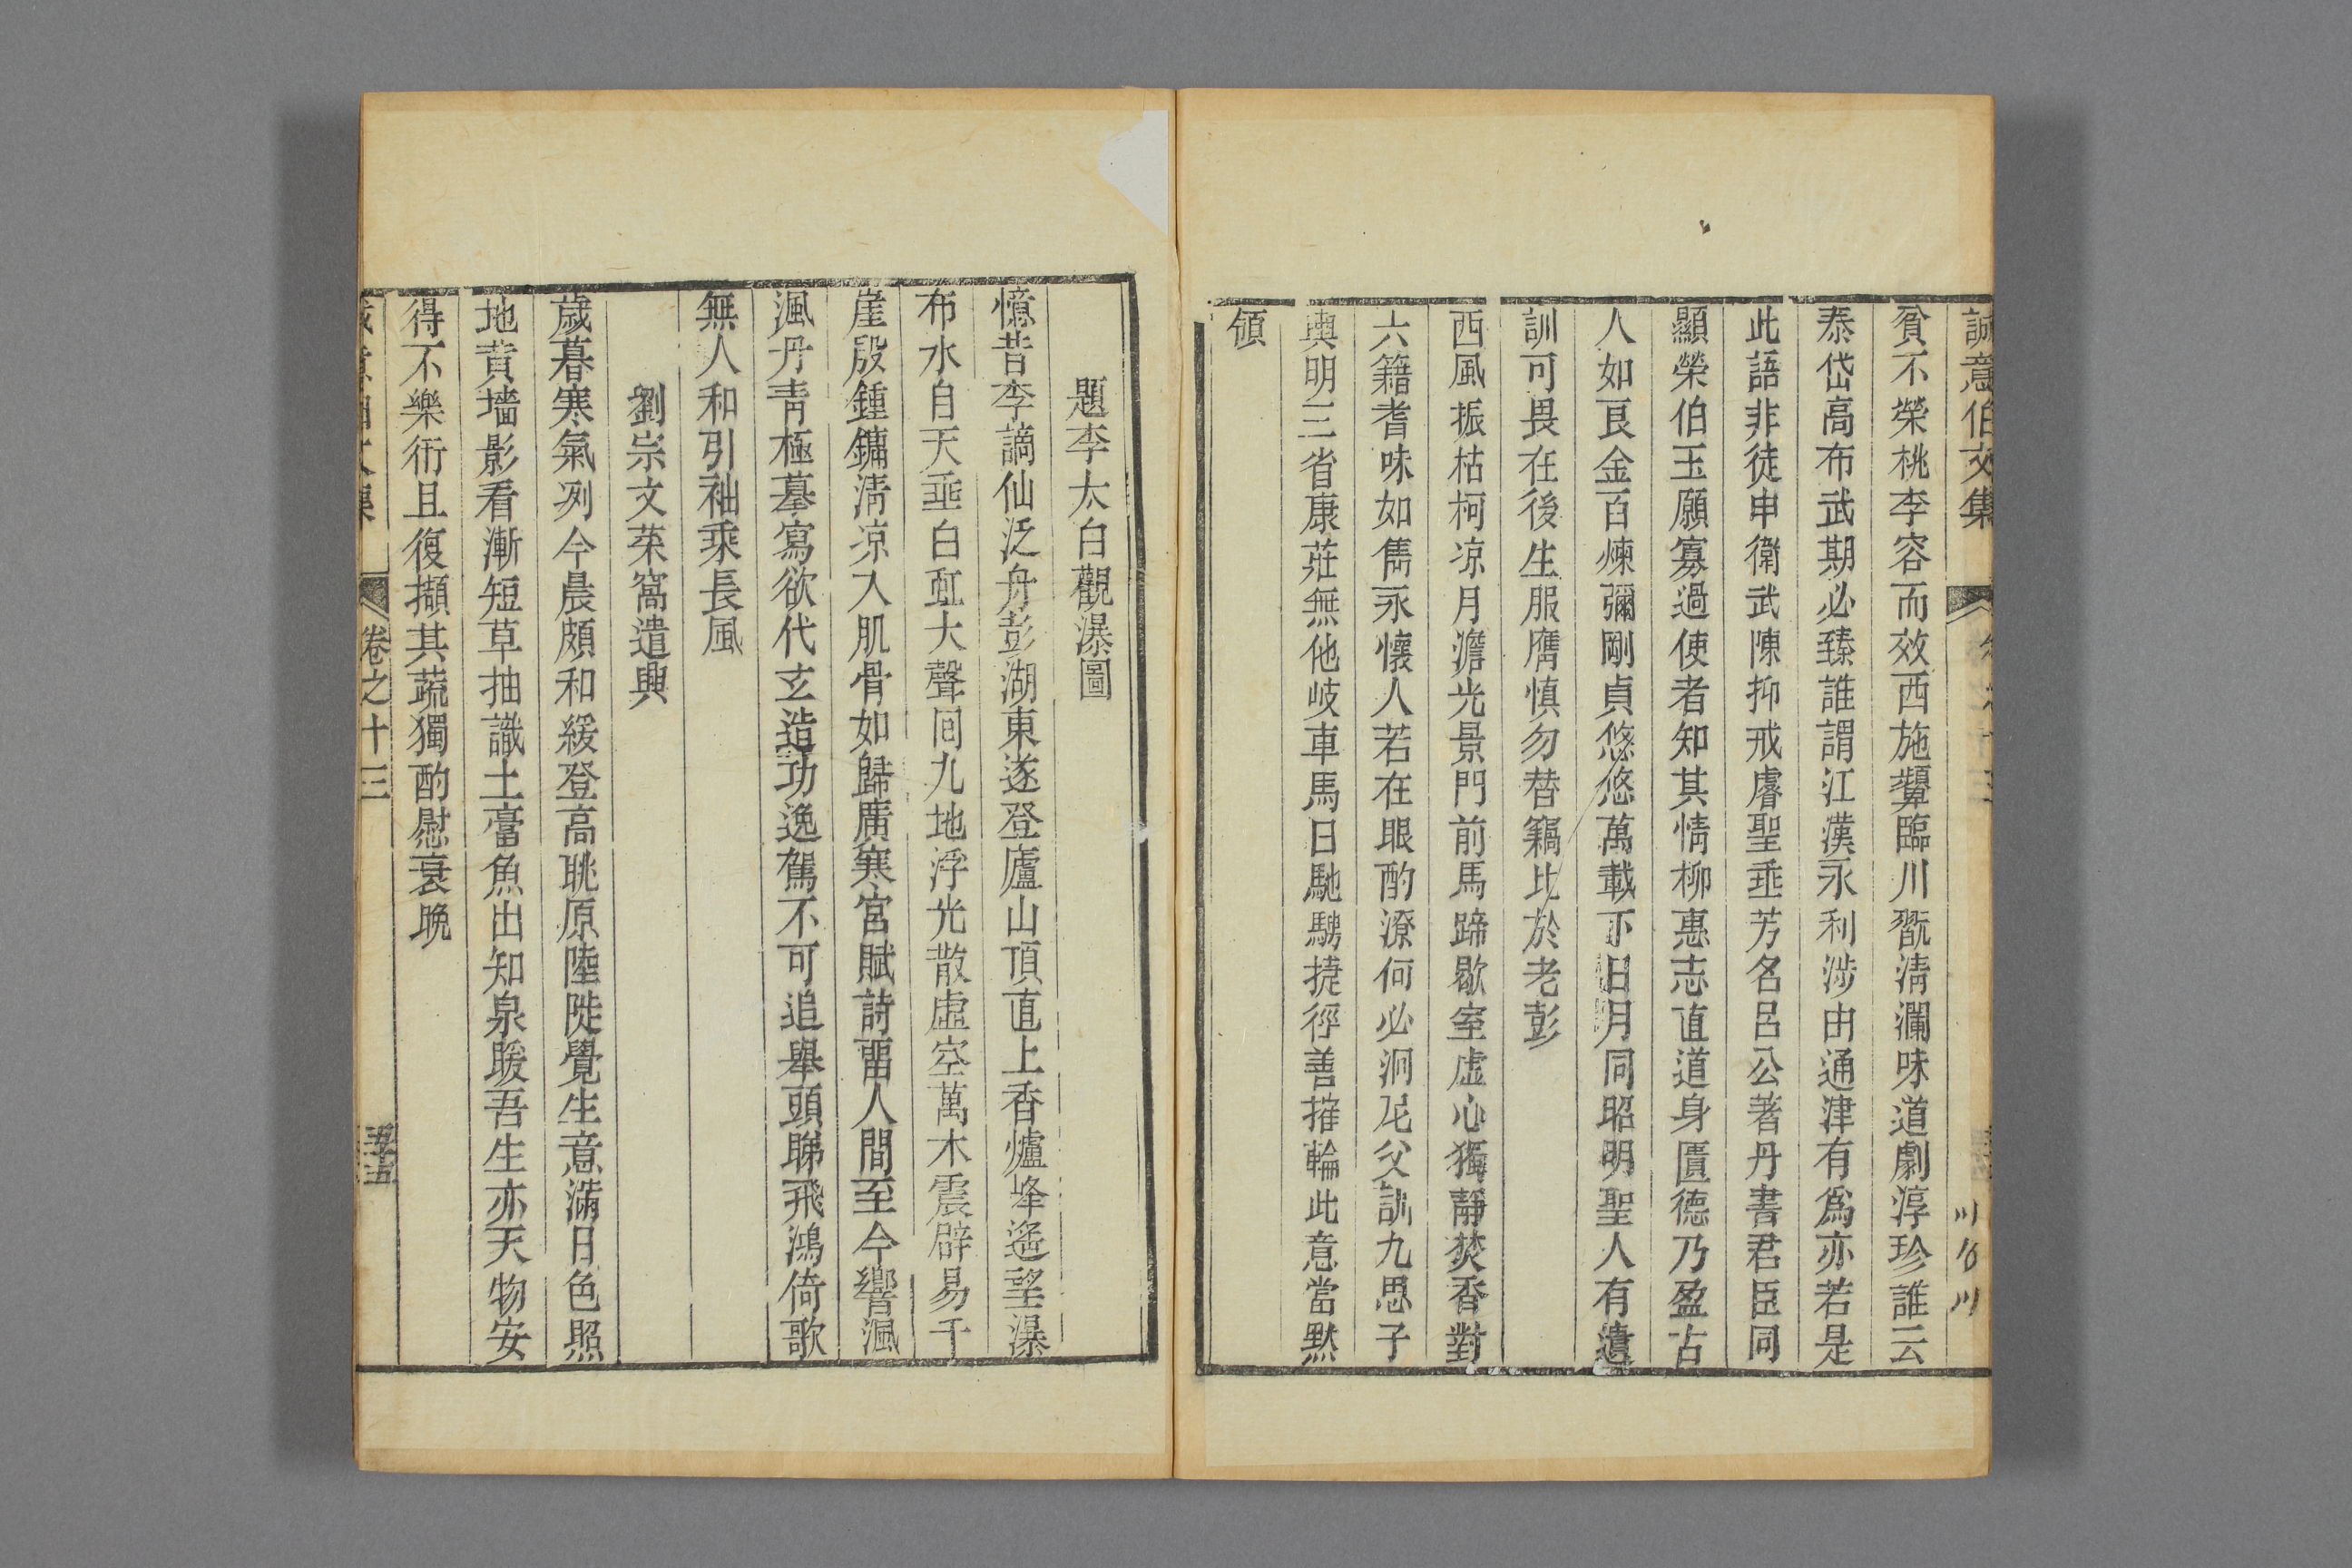 誠意伯文集
貧不榮桃李容而效西施顰臨川翫淸瀾味道劇淳珍誰云
泰岱高布武期必臻誰謂江漢永利涉由通津有爲亦若是
此語非徒申衛武陳抑戒睿聖垂芳名呂公著丹書君臣同
顯榮伯玉願寡過使者知其情柳惠志直道身匱德乃盈古
人如良金百煉彌剛貞悠悠萬載下日月同昭明聖人有遺
訓可畏在後生服膺慎勿替竊比於老彭
西風振枯柯凉月澹光景門前馬蹄歇室虛心獨靜焚香對
六籍耆味如雋永懷人若在眼酌潦何必泂尼父訓九思子
輿明三省康莊無他岐車馬日馳騁捷徑善摧輪此意當黙
領
題李太白觀瀑圖
憶昔李謫仙泛舟彭湖東遂登廬山頂直上香爐峰遙望瀑
布水自天垂白虹大聲囘九地浮光散虛空萬木震辟易千
崖殷鍾鏞淸凉入肌骨如歸廣寒宮賦詩畱人間至今響渢
渢丹靑極摹寫欲代玄造功逸駕不可追舉頭睇飛鴻倚歌
無人和引袖乘長風
劉宗文菜窩遣興
歲暮寒氣冽今晨頗和緩登高眺原陸陡覺生意滿日色照
地黄墻影看漸短草抽識土膏魚出知泉暖吾生亦天物安
得不樂衎且復擷其蔬獨酌慰衰晩
卷之十三